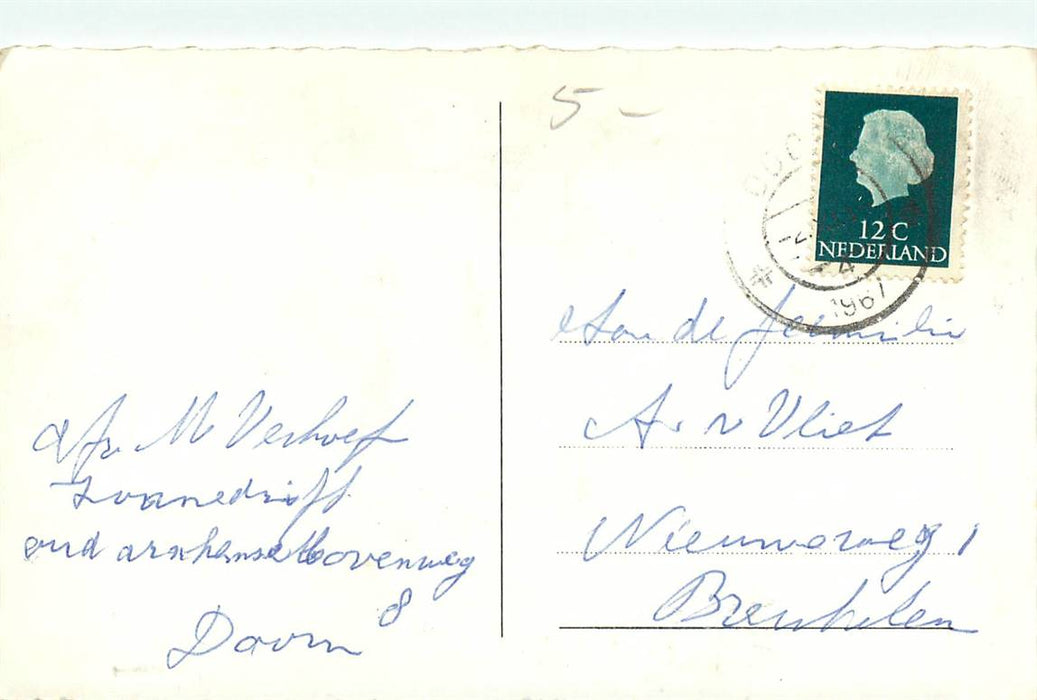 afz. M Verhoef
Zonnedrift
oud arnhemse bovenweg
8
Doorn
5-
12 C
NEDERLAND
4
1967
Aan de familie
A. v Vliet
Nieuweweg 1
Breukelen